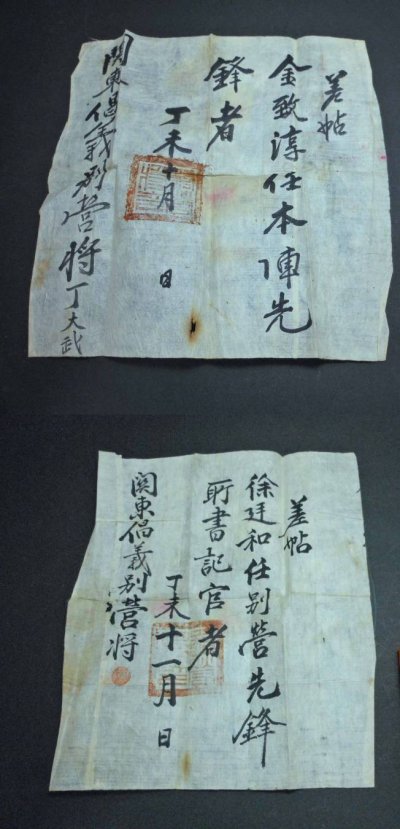 差帖
金致淳任本陣先
鋒者
丁未十月 日
関東倡義別營將丁大武
差帖
徐廷和任别營先鋒
所書記官者
丁未十一月 日
関東倡義别營將